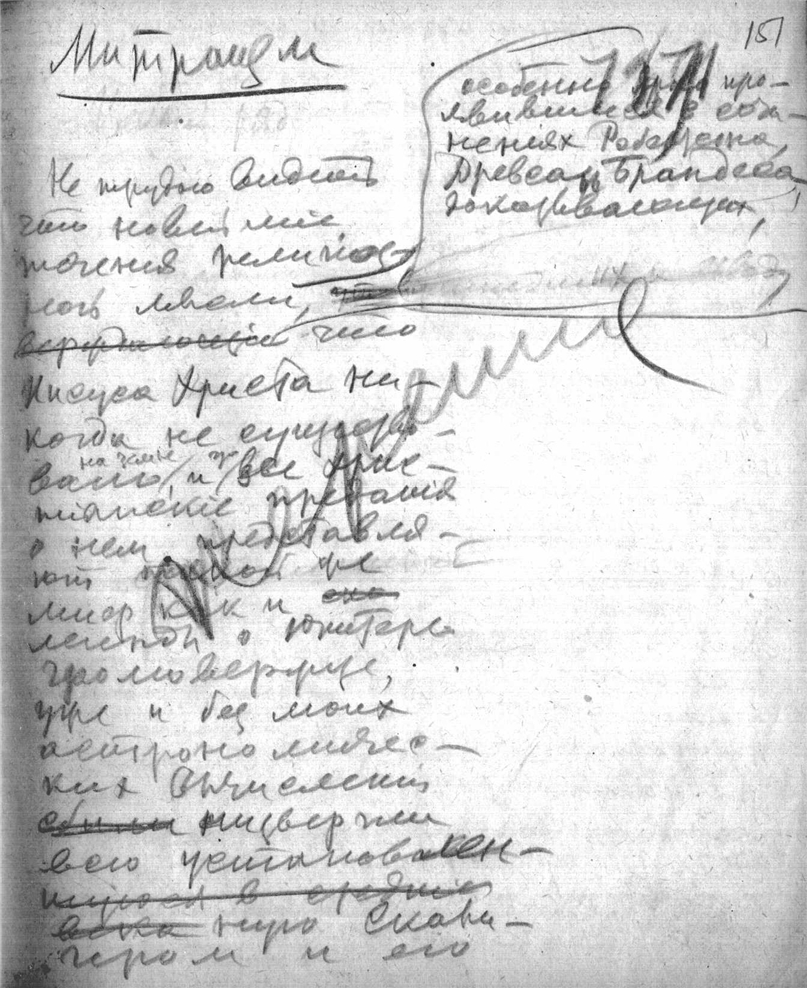 151
Митраизм
особенно ярко про-
явившиеся в сочи-
нениях Робертсона,
Древса и Брандеса,
доказывающих,
Не трудно видеть
что новейшие
течения религиоз-
ной мысли,
что
Иисуса Христа ни-
когда не существо-
на земле
вало, и что все хрис-
тианские предания
о нем представля-
ют такой же
миф как и
легенды о Юпитере
громовержце,
уже и без моих
астрономичес-
ких вычислений
сбили низвергли
всю установлен-
шуюся в средние
века ную Скали-
гером и его